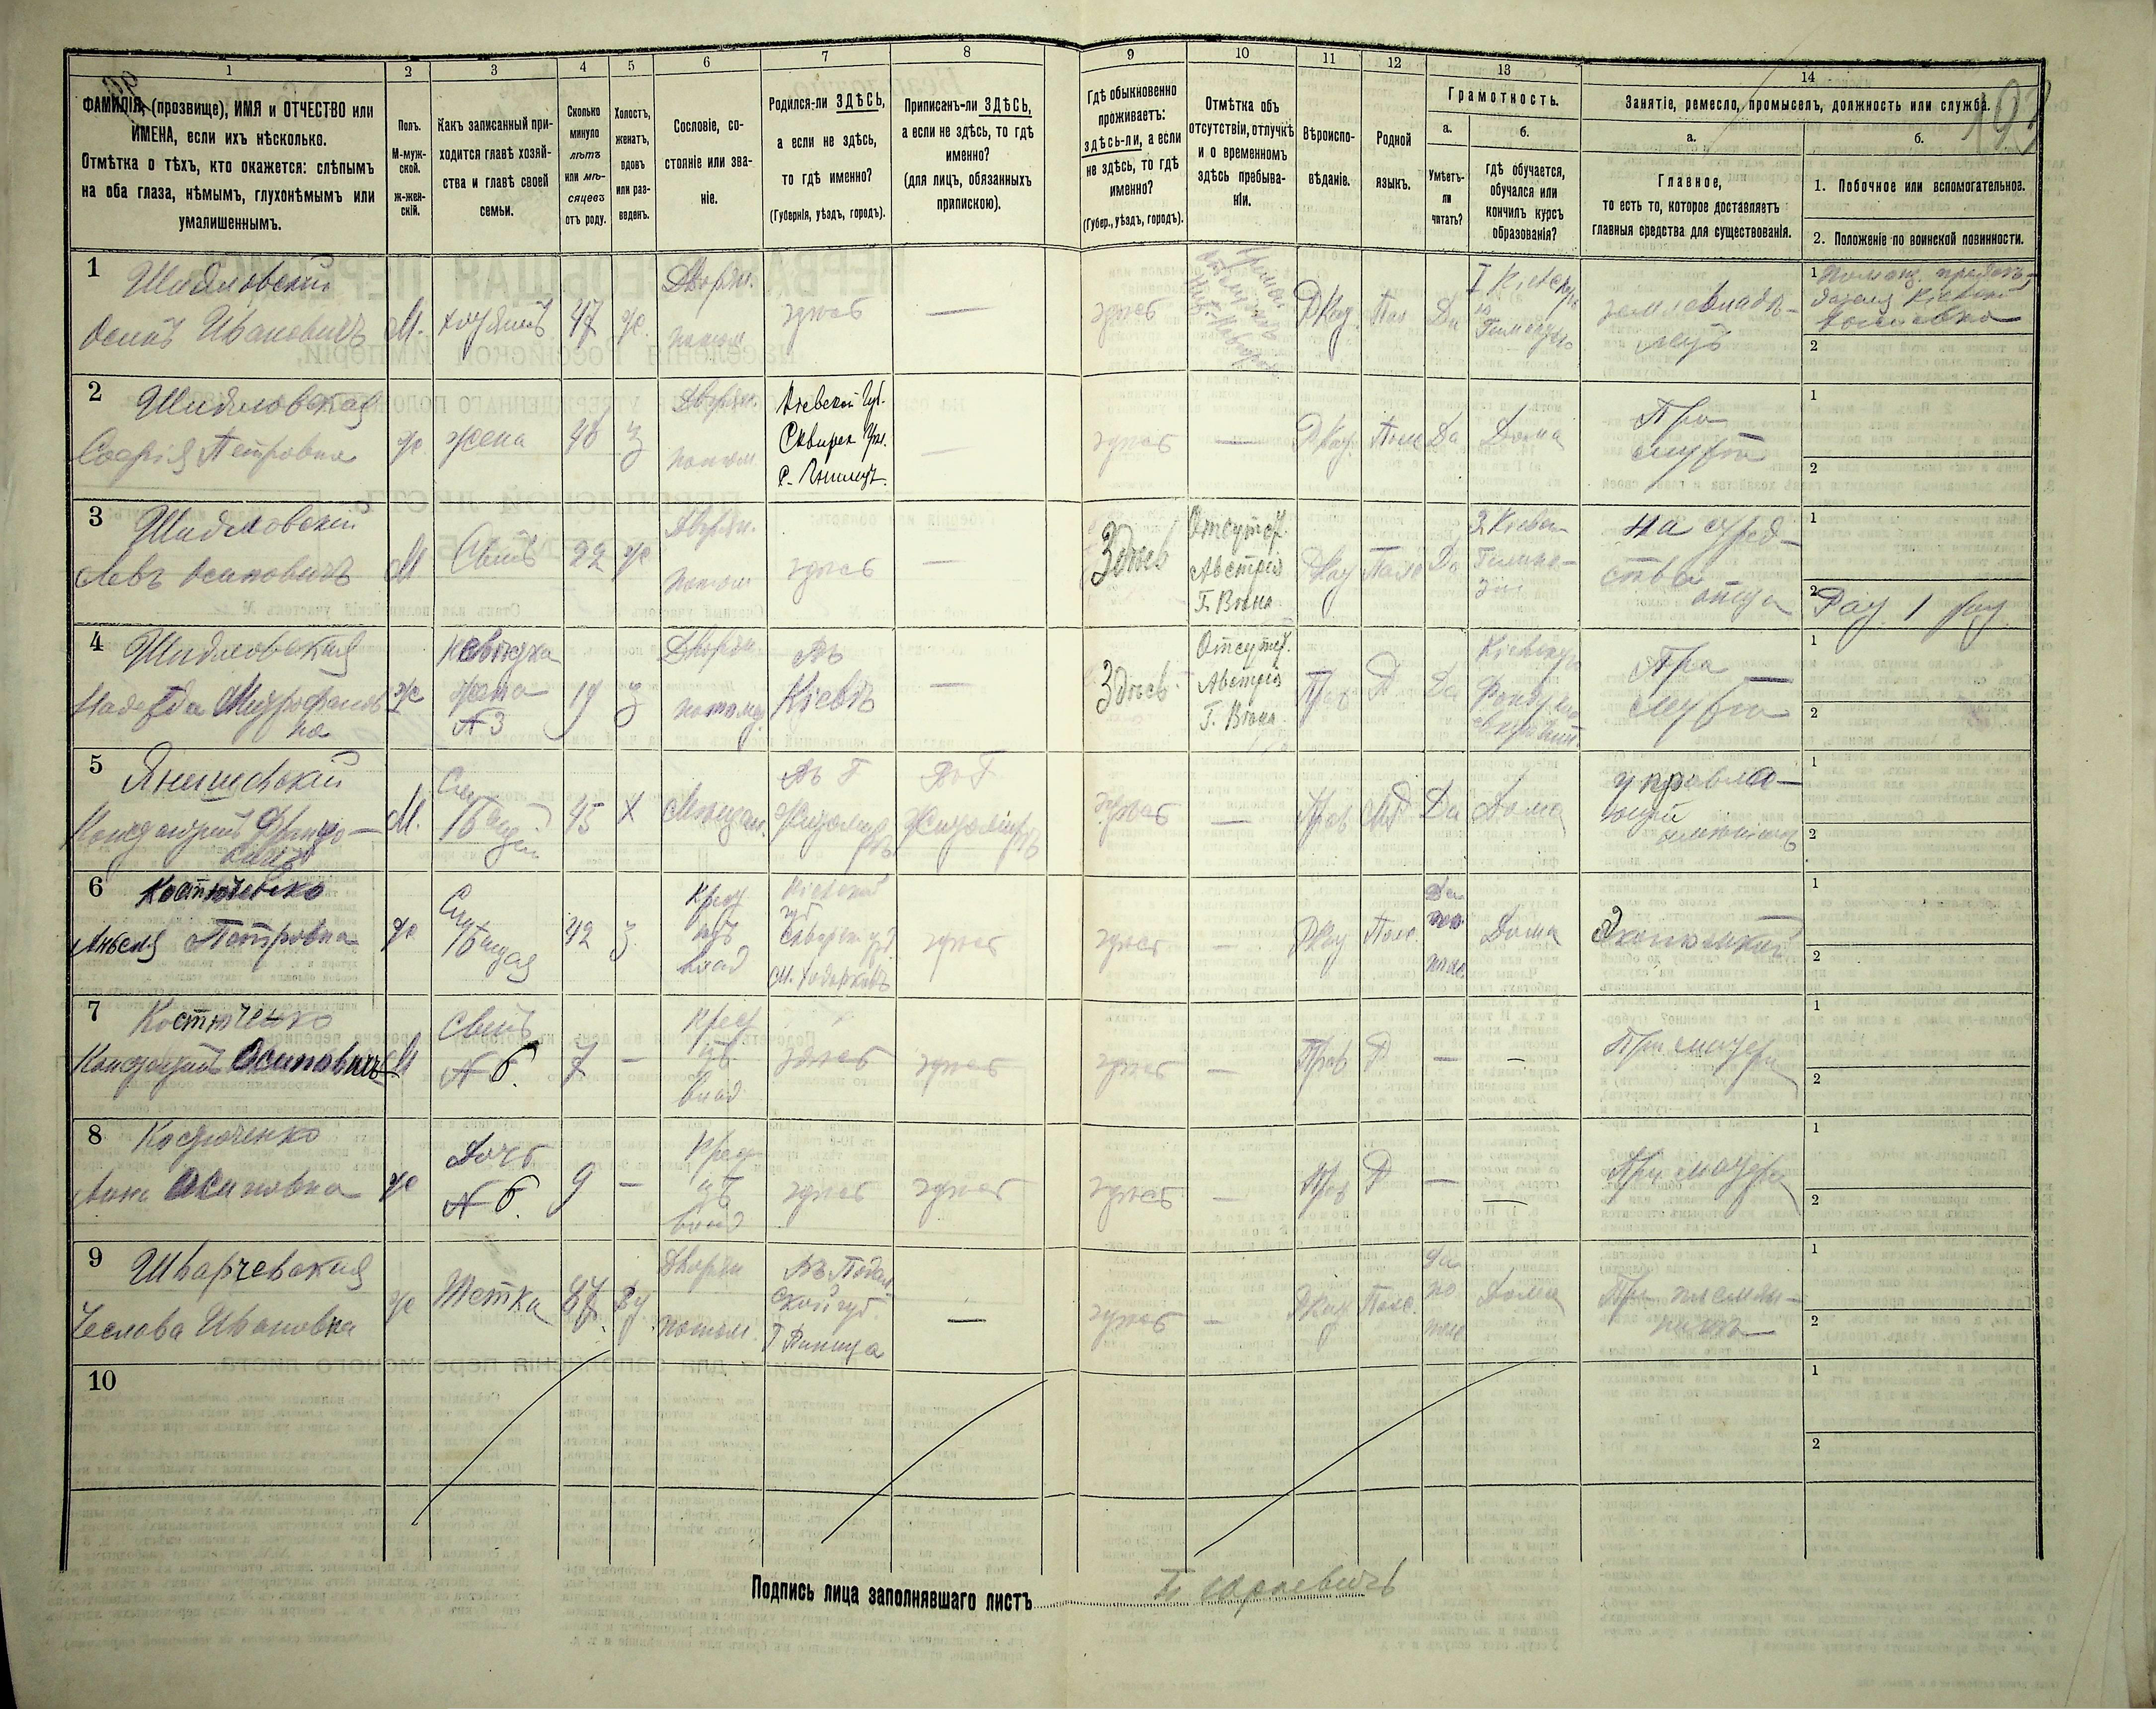 1 2 3 4 5 6 7 8 9 10 11 12 13 14
ФАМИЛІЯ, (прозвище), ИМЯ и ОТЧЕСТВО или
ИМЕНА, если ихъ нѣсколько.
Отмѣтка о тѣхъ, кто окажется: слѣпымъ
на оба глаза, нѣмымъ, глухонѣмымъ или
умалишеннымъ.
Полъ.
М-муж-
ской.
ж-жен-
скій.
Какъ записанный при-
ходится главѣ хозяй-
ства и главѣ своей
семьи.
Сколько
минуло
лѣтъ
или мѣ-
сяцевъ
отъ роду.
Холостъ,
женатъ,
вдовъ
или раз-
веденъ.
Сословіе, со-
стояніе или зва-
ніе.
Родился-ли ЗДѢСЬ,
а если не здѣсь,
то гдѣ именно?
(Губернія, уѣздъ, городъ).
Приписанъ-ли ЗДѢСЬ,
а если не здѣсь, то гдѣ
именно?
(для лицъ, обязанныхъ
припискою).
Гдѣ обыкновенно
проживаетъ:
здѣсь-ли, а если
не здѣсь, то гдѣ
именно?
(Губер., уѣздъ, городъ).
Отмѣтка объ
отсутствіи, отлучкѣ
и о временномъ
здѣсь пребыва-
ніи.
Вѣроиспо-
вѣданіе.
Родной
языкъ.
Грамотность.
а.
Умѣетъ-
ли
читать?
б.
гдѣ обучается,
обучался или
кончилъ курсъ
образованія?
Занятіе, ремесло, промыселъ, должность или служба.
а.
Главное,
то есть то, которое доставляетъ
главныя средства для существованія.
б.
1. Побочное или вспомогательное.
2. Положеніе по воинской повинности.
1
Шидловскій
Осипъ Ивановичъ
М.
хозяинъ
47
ж.
Дворян.
потом
здѣсь
—
здѣсь
РКат.
Пол
Да
I Кіевскую
Гимназію
землевладѣ-
лецъ
1
2
2
Шидловская
Софія Петровна
ж.
жена
46
з
Дворян.
потом
Кіевской Губ.
Сквирск Уѣз.
—
здѣсь
—
РКат.
Пол
Да
Дома
При
мужѣ
1
2
3
Шидловскій
Левъ Осиповичъ
М
Сынъ
22
ж
Дворян.
потом
здѣсь
—
Здѣсь
Отсутст.
Австрія
Г. Вѣна
РКат
Поль
Да
3 Кіевск
Гимна-
зіи
на сред-
ства
отца
1
2
4
Шидловская
Надежда Митрофанов
на
ж
Невѣстка
жена
№ 3
19
з
Дворян
потом
Въ
Кіевѣ
—
Здѣсь
Отсутст.
Австрія
Г. Вѣна
Прав
Р
Да
При
мужѣ
1
2
5
Янишевскій
М.
Слу
жащій
45
Х
Мѣщан.
Въ Г
Житомир
рѣ
Въ Г
Житомірѣ
здѣсь
—
Прав
Да
Дома
управля-
ющій
имѣніемъ
1
2
6
Костюченко
Анеля Петровна
ж
Слу
жащая
42
з
Крест
изъ
влад
Кіевской
губ
м. Ходорковъ
здѣсь
здѣсь
—
РКат
Пол.
Да
по
пол
Дома
Экономкой
1
2
7
Костюченко
Осиповичъ
М
Сынъ
№ 6.
7
—
Крест
изъ
влад
здѣсь
здѣсь
здѣсь
—
Прав
Р
—
—
При матери
1
2
8
Костюченко
Анна Осиповна
ж
Дочь
№ 6.
9
—
Крест
изъ
влад
здѣсь
здѣсь
здѣсь
—
Прав
Р
—
—
При матери
1
2
9
Шварчевская
Чеслава Ивановна
ж
Тетка
87
Ву
Дворян
потом.
Въ Подол
ской губ.
—
здѣсь
—
РКат
Пол.
Да
по
пол
Дома
При племян-
никѣ
1
2
10
1
2
Подпись лица заполнявшаго листъ